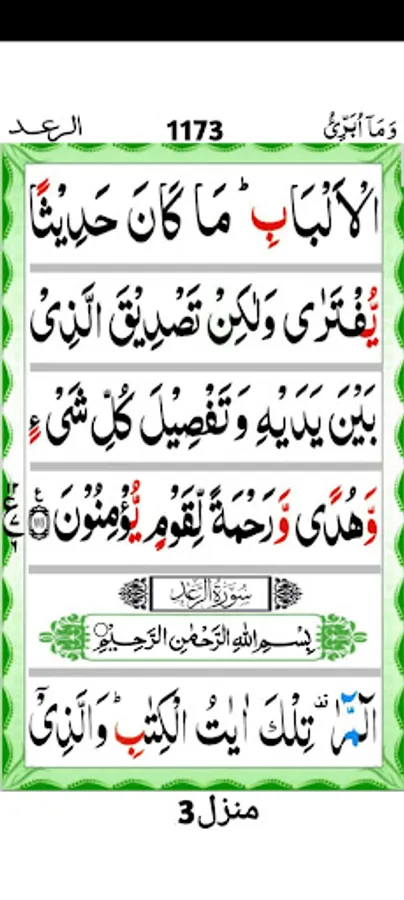 وَمَاۤ اُبَرِّئُ 1173 الرعد
الْاَلْبَابِ ؕ مَا كَانَ حَدِيْثًا
يُّفْتَرٰى وَلٰكِنْ تَصْدِيْقَ الَّذِىْ
بَيْنَ يَدَيْهِ وَتَفْصِيْلَ كُلِّ شَىْءٍ
وَّهُدًى وَّرَحْمَةً لِّقَوْمٍ يُّؤْمِنُوْنَ ۧ ‏﴿۱۱۱﴾
سُوْرَةُ الرَّعْد
بِسْمِ اللهِ الرَّحْمٰنِ الرَّحِيْمِ
الٓمّٓرٰ ۚ تِلْكَ اٰيٰتُ الْكِتٰبِ ؕ وَالَّذِىْۤ
منزل3